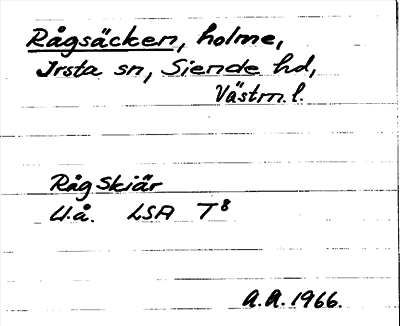 Rågsäcken, holme,
Irsta sn, Siende hd,
Västm. l.
Råg Skiär
U.å. LSA T8
A.A. 1966.